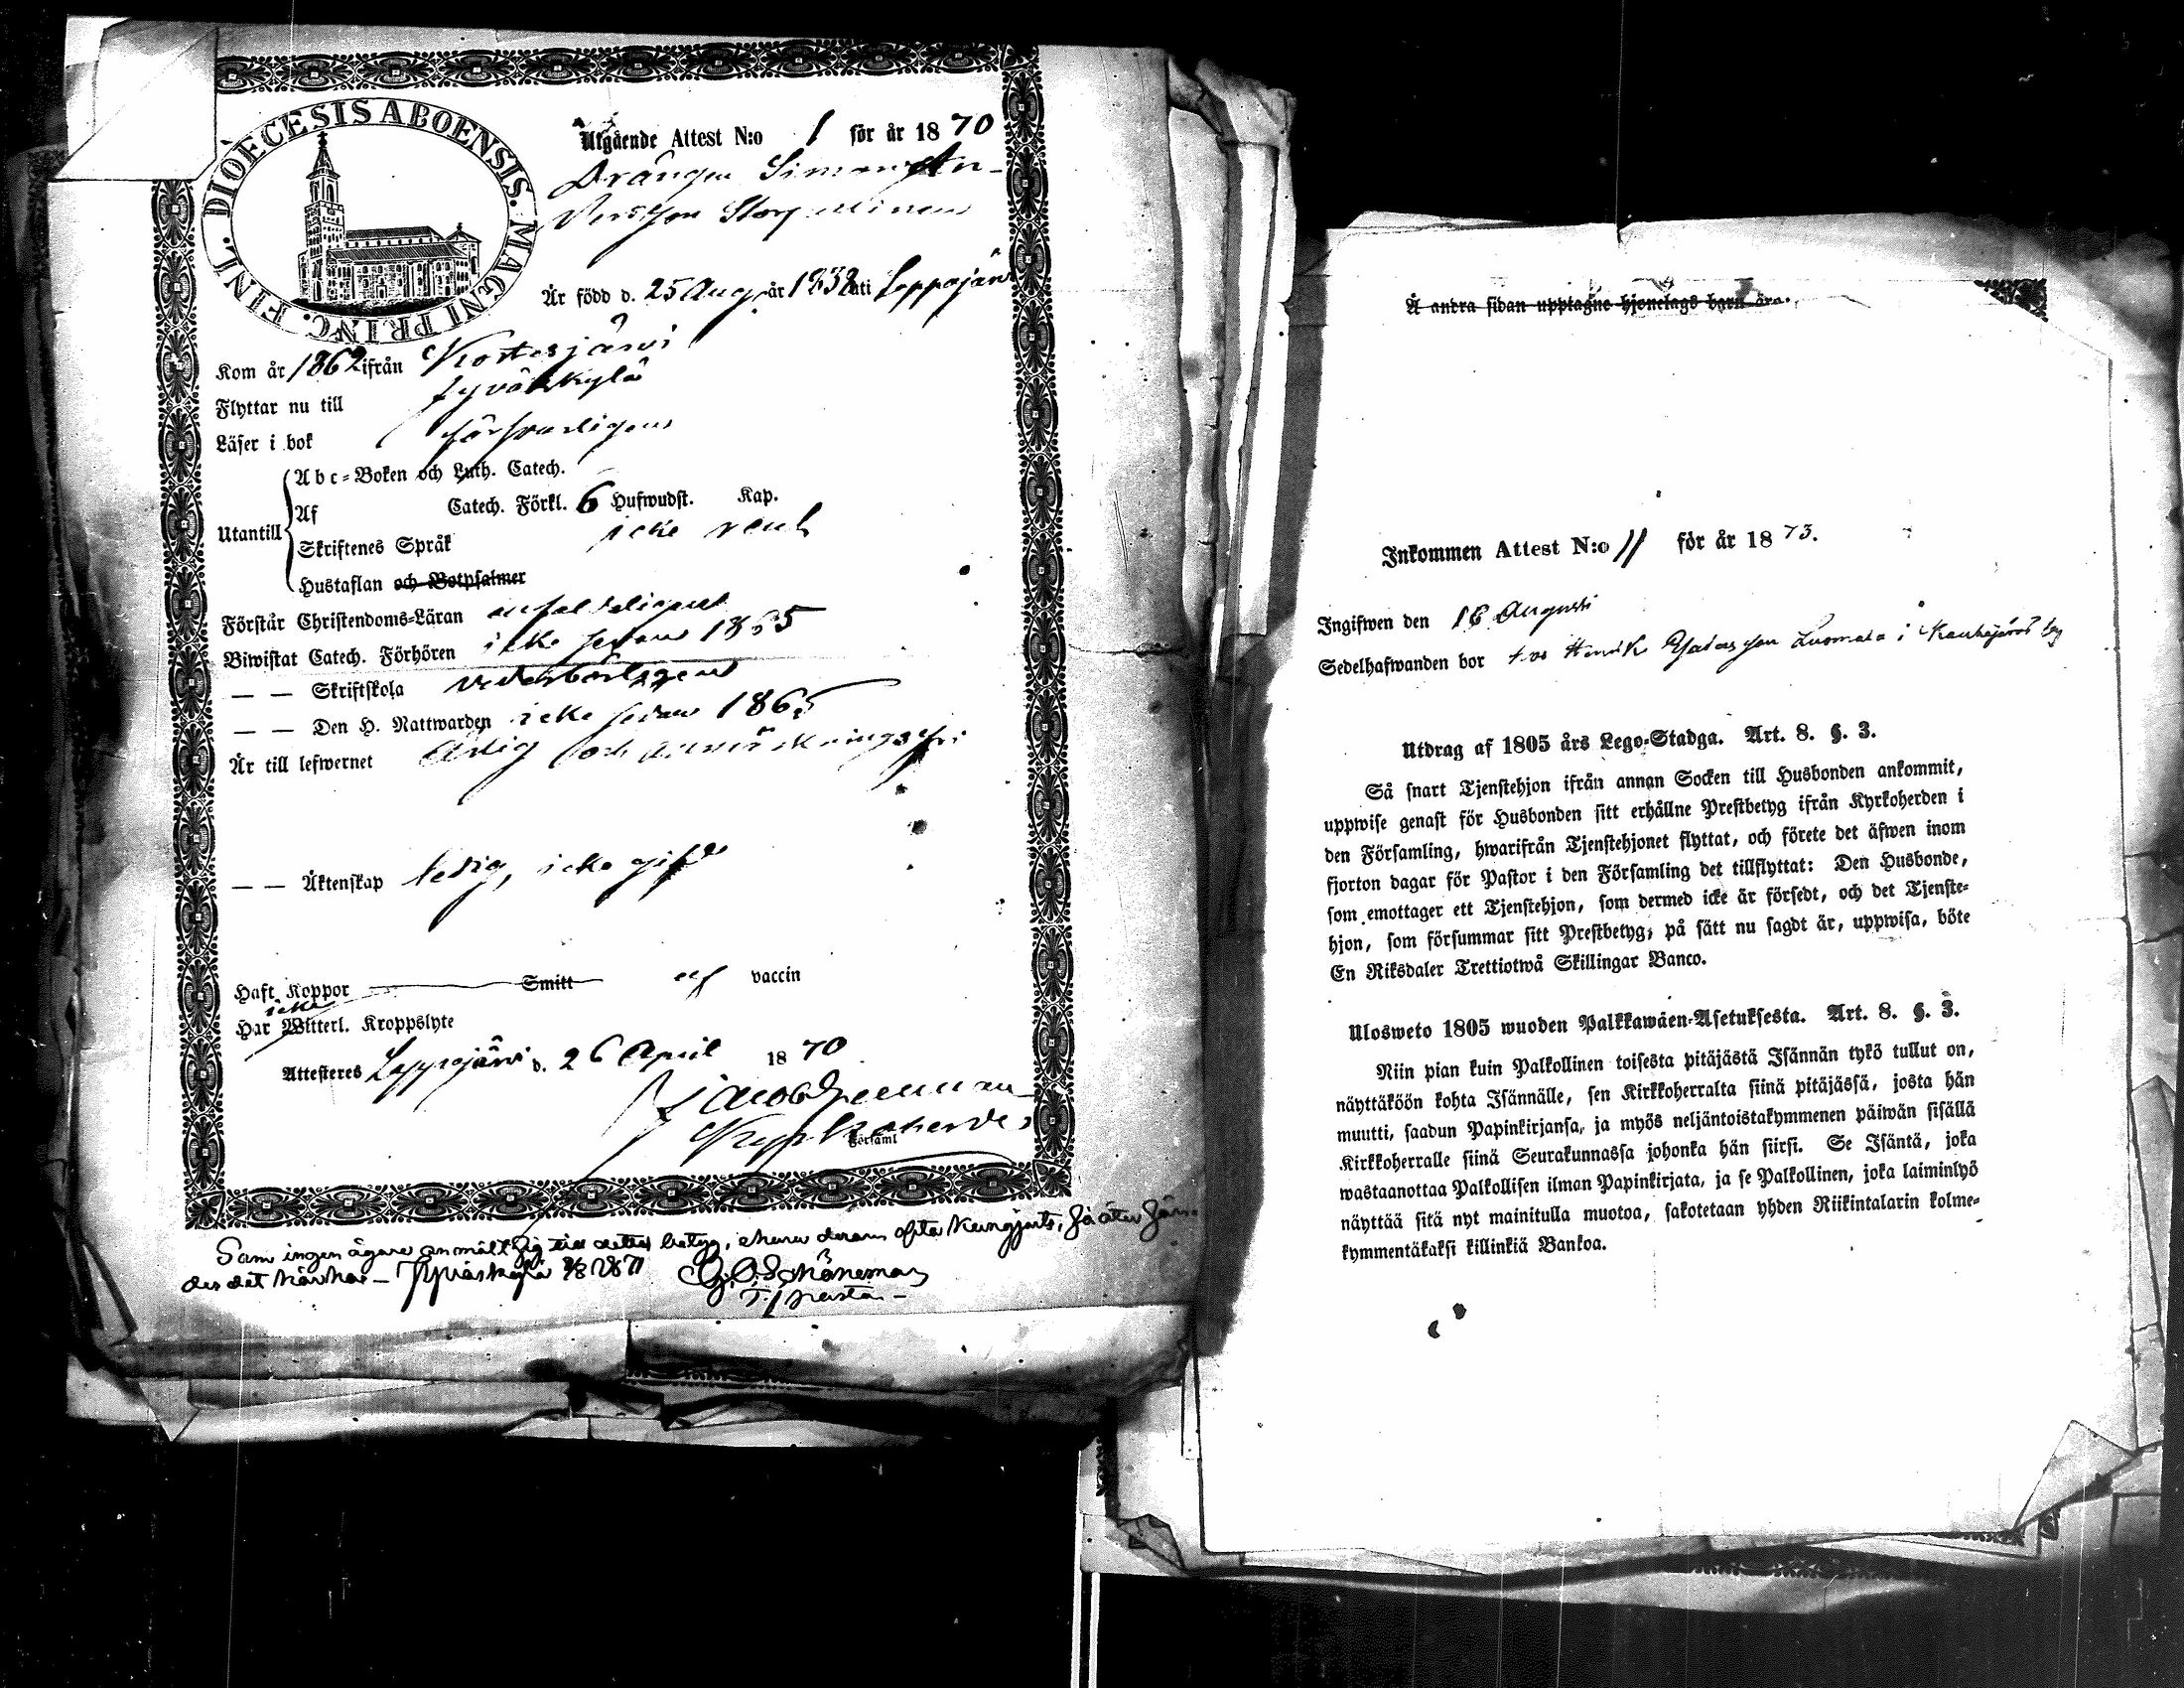 DIOECESIS ABOENSIS. MAGNI PRINC. FINL.
Utgående Attest N:o 1 för år 1870
Drängen Simon An-
dersson
Är född d. 25 Aug. år 1838 uti Lappajärvi
Kom år 1862 ifrån Kortesjärvi
Flyttar nu till Jyväskylä
Läser i bok försvarligen
Utantill
Abc-Boken och Luth. Catech.
Af Catech. Förkl. 6 Hufwudst. Kap.
Skriftenes Språk icke rent
Hustaflan och Botpsalmer
Förstår Christendoms-Läran enfaldeligen
Biwistat Catech. Förhören icke sedan 1865
— — Skriftskola vederbörligen
— — Den H. Nattwarden icke sedan 1865
Är till lefwernet ärlig och anmärkningsfri
— — Äktenskap ledig, icke gift
Haft Koppor Smitt af vaccin
icke
Har Witterl. Kroppslyte
Attesteres Lappajärvi d. 26 April 1870
Jacob
Kyrkoherde
Församl
Som ingen ägare anmält sig till detta betyg, ehuru derom ofta kungjorts, så åter sän-
des det härhos — Jyväskylä 3/8 1871
Å andra sidan upptagne hjonelags barn äro:
Inkommen Attest N:o 11 för år 1873.
Ingifwen den 16 Augusti
Sedelhafwanden bor hos Henrik Luomala i Kauhajärvi by
Utdrag af 1805 års Lego-Stadga. Art. 8. §. 3.
Så snart Tjenstehjon ifrån annan Socken till Husbonden ankommit,
uppwise genast för Husbonden sitt erhållne Prestbetyg ifrån Kyrkoherden i
den Församling, hwarifrån Tjenstehjonet flyttat, och förete det äfwen inom
fjorton dagar för Pastor i den Församling det tillflyttat: Den Husbonde,
som emottager ett Tjenstehjon, som dermed icke är försedt, och det Tjenste-
hjon, som försummar sitt Prestbetyg, på sätt nu sagdt är, uppwisa, böte
En Riksdaler Trettiotwå Skillingar Banco.
Ulosweto 1805 wuoden Palkkawäen-Asetuksesta. Art. 8. §. 3.
Niin pian kuin Palkollinen toisesta pitäjästä Isännän tykö tullut on,
näyttäköön kohta Isännälle, sen Kirkkoherralta siinä pitäjässä, josta hän
muutti, saadun Papinkirjansa, ja myös neljäntoistakymmenen päiwän sisällä
Kirkkoherralle siinä Seurakunnassa johonka hän siirsi. Se Isäntä, joka
wastaanottaa Palkollisen ilman Papinkirjata, ja se Palkollinen, joka laiminlyö
näyttää sitä nyt mainitulla muotoa, sakotetaan yhden Riikintalarin kolme-
kymmentäkaksi killinkiä Bankoa.